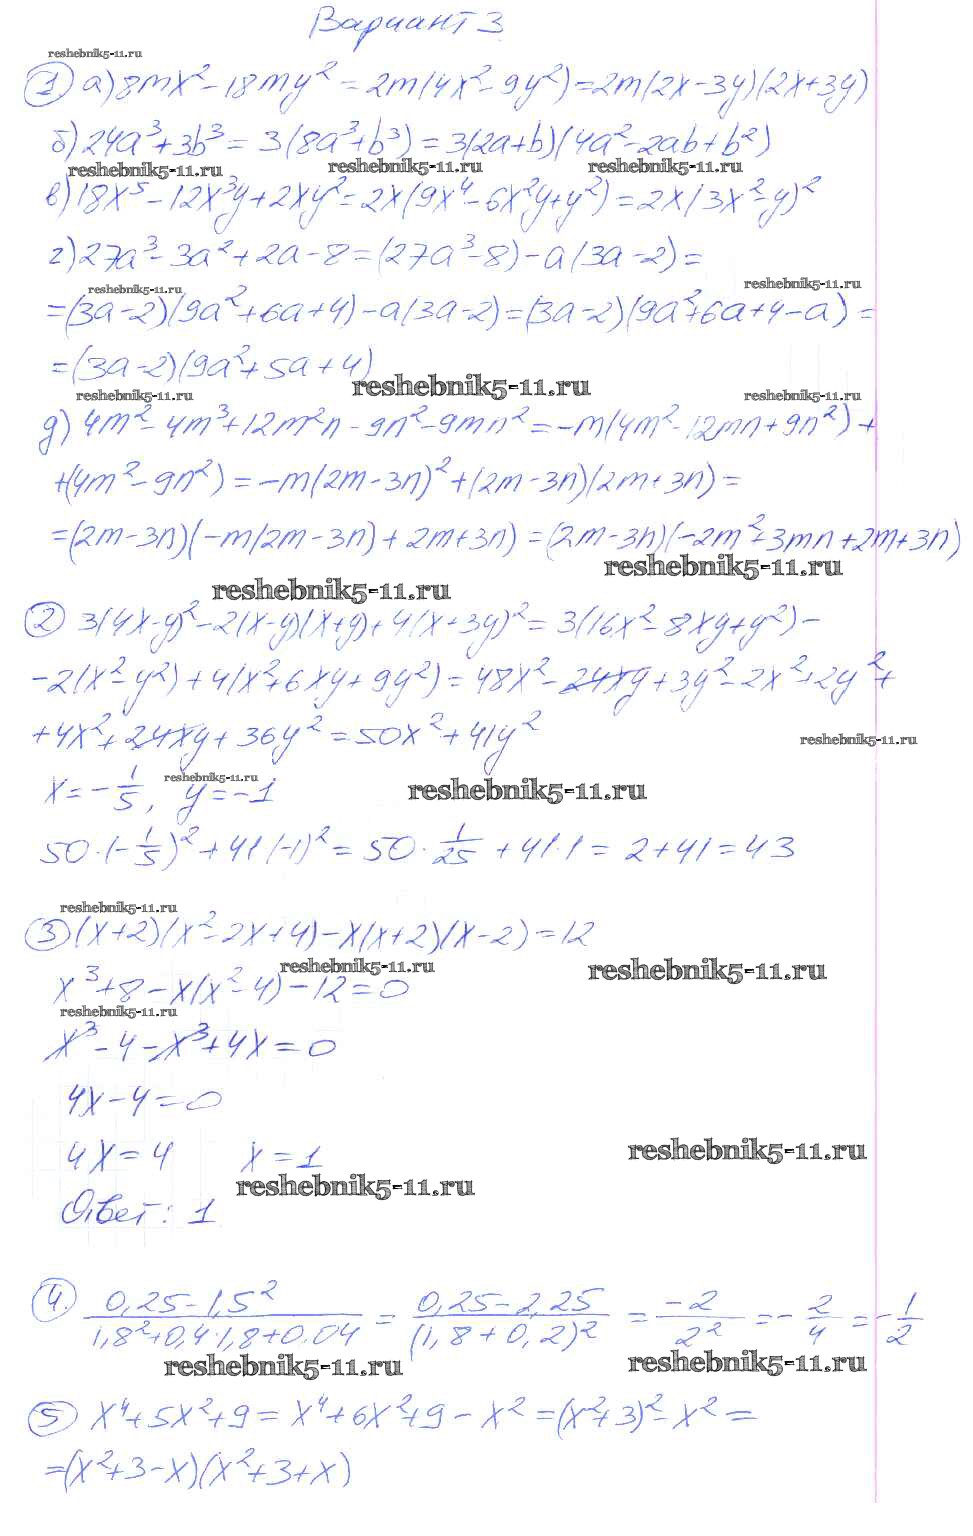 Вариант 3
reshebnik5-11.ru
① а) 8mx² - 18my² = 2m(4x² - 9y²) = 2m(2x - 3y)(2x + 3y)
б) 24a³ + 3b³ = 3(8a³ + b³) = 3(2a + b)(4a² - 2ab + b²)
reshebnik5-11.ru reshebnik5-11.ru reshebnik5-11.ru
в) 18x⁵ - 12x³y + 2xy² = 2x(9x⁴ - 6x²y + y²) = 2x(3x² - y)²
г) 27a³ - 3a² + 2a - 8 = (27a³ - 8) - a(3a - 2) =
reshebnik5-11.ru reshebnik5-11.ru
= (3a - 2)(9a² + 6a + 4) - a(3a - 2) = (3a - 2)(9a² + 6a + 4 - a) =
= (3a - 2)(9a² + 5a + 4)
reshebnik5-11.ru reshebnik5-11.ru reshebnik5-11.ru
д) 4m² - 4m³ + 12m²n - 9n² - 9mn² = -m(4m² - 12mn + 9n²) +
+ (4m² - 9n²) = -m(2m - 3n)² + (2m - 3n)(2m + 3n) =
= (2m - 3n)(-m(2m - 3n) + 2m + 3n) = (2m - 3n)(-2m² + 3mn + 2m + 3n)
reshebnik5-11.ru reshebnik5-11.ru
② 3(4x - y)² - 2(x - y)(x + y) + 4(x + 3y)² = 3(16x² - 8xy + y²) -
- 2(x² - y²) + 4(x² + 6xy + 9y²) = 48x² - 24xy + 3y² - 2x² + 2y² +
+ 4x² + 24xy + 36y² = 50x² + 41y²
reshebnik5-11.ru
x = -1/5, y = -1
reshebnik5-11.ru reshebnik5-11.ru
50 · (-1/5)² + 41(-1)² = 50 · 1/25 + 41 · 1 = 2 + 41 = 43
reshebnik5-11.ru
③ (x + 2)(x² - 2x + 4) - x(x + 2)(x - 2) = 12
reshebnik5-11.ru reshebnik5-11.ru
x³ + 8 - x(x² - 4) - 12 = 0
reshebnik5-11.ru
x³ - 4 - x³ + 4x = 0
4x - 4 = 0
4x = 4 x = 1
reshebnik5-11.ru reshebnik5-11.ru
Ответ: 1
④. (0,25 - 1,5²)/(1,8² + 0,4 · 1,8 + 0.04) = (0,25 - 2,25)/(1,8 + 0,2)² = -2/2² = -2/4 = -1/2
reshebnik5-11.ru reshebnik5-11.ru
⑤ x⁴ + 5x² + 9 = x⁴ + 6x² + 9 - x² = (x² + 3)² - x² =
= (x² + 3 - x)(x² + 3 + x)